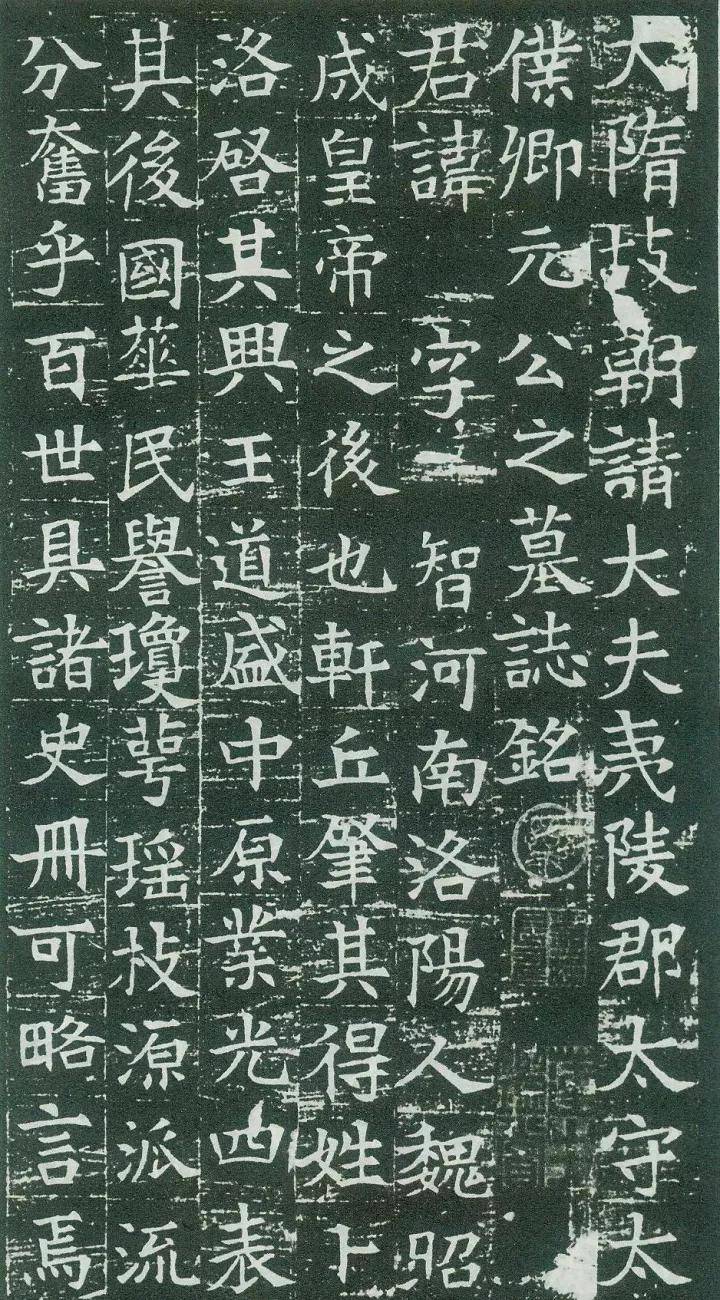 大隋故朝請大夫夷陵郡太守太
僕卿元公之墓誌銘
君諱 字 智河南洛陽人魏昭
成皇帝之後也軒丘肇其得姓卜
洛啓其興王道盛中原業光四表
其後國華民譽瓊萼瑶枝源派流
分奮乎百世具諸史冊可略言焉